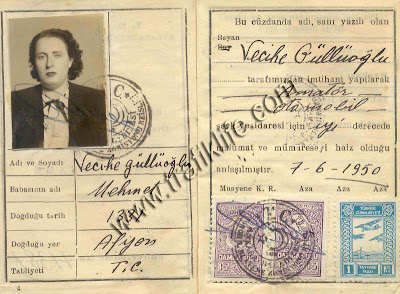 Adı ve Soyadı Vecihe Güllüoğlu
Babasının adı Mehmet
Doğduğu tarih
Doğduğu yer Afyon
Tabiiyeti T.C.
4
Bu cüzdanda adı, sanı yazılı olan
Bayan
Bay Vecihe Güllüoğlu
tarafımızdan imtihanı yapılarak
Amatör
Otomobil
sevk ve idaresi için iyi derecede
malûmat ve mümareseyi haiz olduğu
anlaşılmıştır. 7-6-1950
Muayene K. R. Aza Aza
T.C.
TÜRKİYE
CUMHURİYETİ
1 KURUŞ